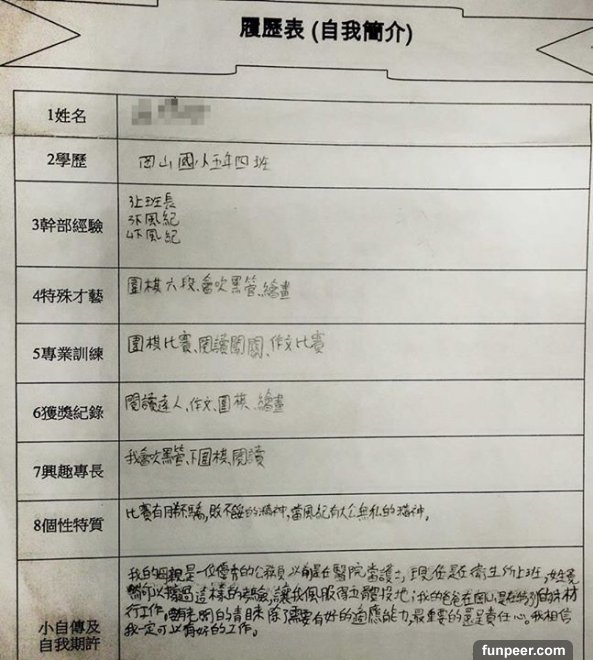 履歷表 (自我簡介)
1姓名
2學歷
岡山國小五年四班
3幹部經驗
3上班長
3下風紀
4下風紀
4特殊才藝
圍棋六段、會吹黑管、繪畫
5專業訓練
圍棋比賽、閱讀闖關、作文比賽
6獲獎紀錄
閱讀達人、作文、圍棋、繪畫
7興趣專長
我會吹黑管、下圍棋、閱讀
8個性特質
比賽有勝不驕,敗不餒的精神,當風紀有大公無私的精神。
小自傳及
自我期許
我的母親是一位優秀的公務員,以前是在醫院當護士,現任是在衛生所上班,
這樣的 讓我佩服得五體投地;我的爸爸在岡山
行工作, 的青睞除了需要有好的適應能力,最重要的還是責任心。我相信
我一定可以有好的工作。
funpeer.com